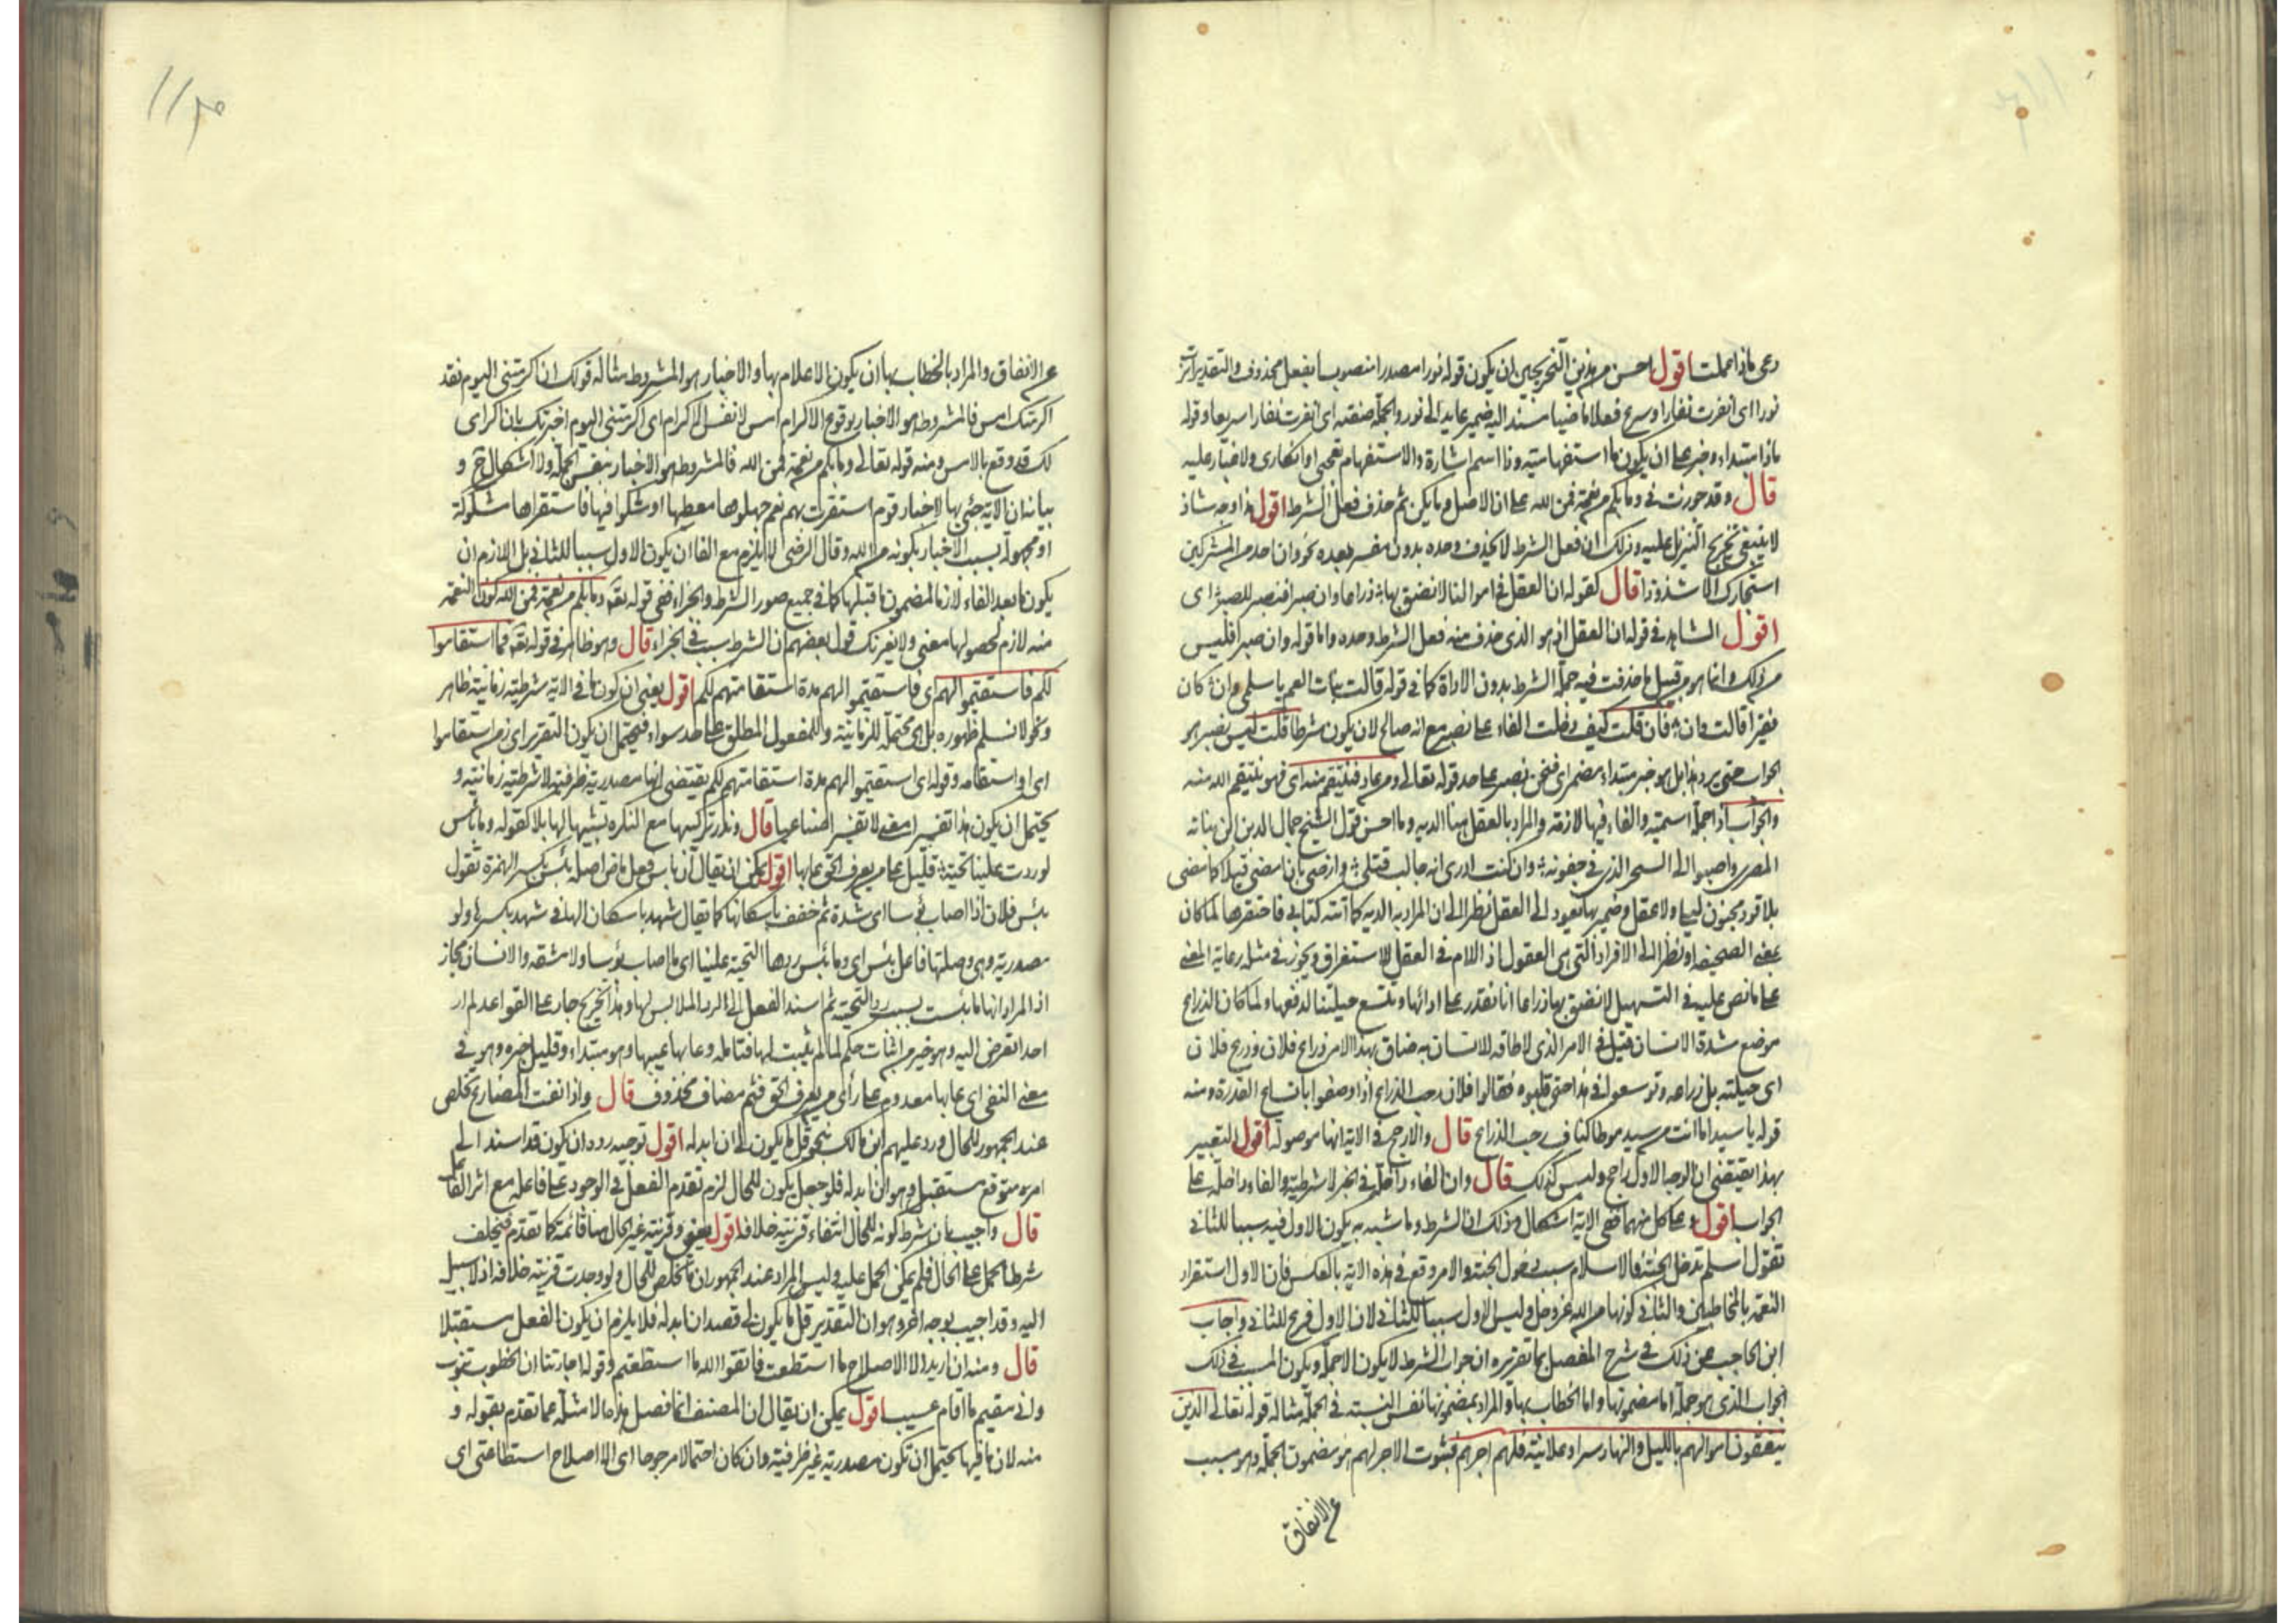 دعى ماذا علمت اقول احسن من هذين التخريجين ان يكون قوله نورا مصدرا منصوبا بفعل محذوف والتقدير انرت
نورا اى انفرت نفارا وسرع فعلا ماضيا مسند الى ضمير عايد الى نور والجملة صفته اى انفرت نفارا سريعا وقوله
ماذا مبتداء وخبر على ان يكون ما استفهامية وذا اسم اشارة والاستفهام تعجبى او انكارى ولا غبار عليه
قال وقد جوزت فى وما بكم من نعمة فمن الله على ان الاصل وما يكن ثم حذف فعل الشرط اقول هذا وجه شاذ
لا ينبغى تخريج التنزيل عليه وذلك ان فعل الشرط لا يحذف وحده بدون مفسر بعده نحو وان احد من المشركين
استجارك الا شذوذا قال كقوله ان العقل فى اموالنا لا نضق بها ذراعا وان صبرا فنصبر للصبر اى
اقول الشاهد فى قوله ان العقل اذ هو الذى حذف منه فعل الشرط وحده واما قوله وان صبرا فليس
من ذلك وانما هو من قبيل ما حذفت فيه جملة الشرط بدون الاداة كما فى قوله قالت بنات العم يا سلمى وان كان
فقيرا قالت وان فان قلت كيف دخلت الفاء على نصبر مع انه صالح لان يكون شرطا قلت ليس نصبر هو
الجواب حتى يرد هذا بل هو خبر مبتداء مضمر اى فنحن نصبر على حد قوله تعالى ومن عاد فينتقم منه اى فهو ينتقم الله منه
والجواب اذا جملة اسمية والفاء فيها لازمة والمراد بالعقل هنا الدية وما احسن قول الشيخ جمال الدين ابن نباته
المصرى واصبوا الى السحر الذى فى جفونه وان كنت ادرى انه جالب قتلى وارضى بان امضى قتيلا كما مضى
بلا قود مجنون ليلى ولا عقل وضمير بها يعود الى العقل نظرا الى ان المراد به الدية كما اتته كتابى فاحتقرها لما كان
بمعنى الصحيفة او نظرا الى الافراد التى هى العقول اذ اللام فى العقل للاستغراق ويجوز فى مثله رعاية المعنى
على ما نص عليه فى التسهيل لا نضق بها ذراعا انا نقدر على ادائها ويتسع حيلتنا لدفعها ولما كان الذراع
موضع شدة الانسان قيل فى الامر الذى لا طاقة للانسان به ضاق بهذا الامر ذراع فلان وذرع فلان
اى حيلته بل ذراعه وتوسعوا فى هذا حتى قلبوه فقالوا فلان رحب الذراع اذا وصفوا باتساع القدرة ومنه
قوله يا سيدا ما انت من سيد موطا الاكناف رحب الذراع قال والارجح فى الاية انها موصولة اقول التعبير
بهذا يقتضى ان الوجه الاول راجح وليس كذلك قال وان الفاء داخلة فى الخبر لا شرطية والفاء داخلة على
الجواب اقول وعلى كل منهما ففى الاية اشكال وذلك ان الشرط وما شبه به يكون الاول فيه سببا للثانى
تقول اسلم تدخل الجنة فالاسلام سبب دخول الجنة والامر وقع فى هذه الاية بالعكس فان الاول استقرار
النعمة بالمخاطبين والثانى كونها من الله عز وجل وليس الاول سببا للثانى لان الاول فرع للثانى واجاب
ابن الحاجب عن ذلك فى شرح المفصل بما تقريره ان جواب الشرط لا يكون الا جملة ويكون المسبب فى ذلك
الجواب الذى هو جملة اما مضمونها واما الخطاب بها والمراد بمضمونها نفس النسبة فى الجملة مثاله قوله تعالى الذين
ينفقون اموالهم بالليل والنهار سرا وعلانية فلهم اجرهم فثبوت الاجر لهم هو مضمون الجملة وهو مسبب
عن الانفاق
عن الانفاق والمراد بالخطاب بها ان يكون الاعلام بها والاخبار هو المشروط مثاله قولك ان اكرمتنى اليوم فقد
اكرمتك امس فالمشروط هو الاخبار بوقوع الاكرام امس لا نفس الاكرام اى اكرمتنى اليوم اخبرتك بان اكرامى
لك قد وقع بالامس ومنه قوله تعالى وما بكم من نعمة فمن الله فالمشروط هو الاخبار بنفس الجملة ولا اشكال ثم و
بيانه ان الاية جئ بها لاخبار قوم استقرت بهم نعم جهلوا معطيها او شكوا فيها فاستقرارها مشكوكة
او مجهولة بسبب الاخبار بكونه من الله وقال الرضى لا يلزم مع الفا ان يكون الاول سببا للثانى بل اللازم ان
يكون ما بعد الفاء لازما لمضمون ما قبلها كما فى جميع صور الشرط والجزاء ففى قوله تعه وما بكم من نعمة فمن الله كون النعمة
منه لازم لحصولها معنى ولا يغرنك قول بعضهم ان الشرط سبب فى الجزاء قال وهو ظاهر فى قوله تعه فما استقاموا
لكم فاستقيموا لهم اى فاستقيموا لهم مدة استقامتهم لكم اقول يعنى ان كون ما فى الاية شرطية زمانية ظاهر
ونحو لا نسلم ظهوره بل هى محتملة للزمانية وللمفعول المطلق على حد سواء فيحتمل ان يكون التقدير اى زمن استقاموا
اى او استقامة وقوله اى استقيموا لهم مدة استقامتهم لكم يقتضى انها مصدرية ظرفية لا شرطية زمانية و
يحتمل ان يكون هذا تفسيرا معنى لا تفسيرا صناعيا قال وندر تركيبها مع النكرة تشبيها لها بلا كقوله وما بأس
لو ردت علينا تحية قليل على من يعرف الحق عابها اقول يمكن ان يقال ان بأس فعل ماض اصله بئس بكسر الهمزة تقول
بئس فلان اذا اصاب بأسا اى شدة ثم خفف باسكانها كما يقال شهد باسكان الها فى شهد بكسرها ولو
مصدرية وهى وصلتها فاعل بئس اى وما بئس ردها التحية علينا اى ما اصاب بؤسا ولا مشقة والانسان مجاز
اذ المراد انها ما بئست بسبب رد التحية ثم اسند الفعل الى الرد الملابس لها وهذا تخريج جار على القواعد لم ار
احدا تعرض اليه وهو خير من اثبات حكم لما لم يثبت لها فتامله وعابها عيبها وهو مبتداء وقليل خبره وهو فى
معنى النفى اى عابها معدوم على راى من يعرف الحق فثم مضاف محذوف قال واذا نفت المضارع تخلص
عند الجمهور للحال ورد عليهم ابن مالك بنحو قل ما يكون لى ان ابدله اقول توجيه رده ان يكون قد اسند الى
امر متوقع مستقبل وهو ان ابدله فلو جعل يكون للحال لزم تقدم الفعل فى الوجود على فاعله مع اثر الفا
قال واجيب بان شرط كونه للحال انتفاء قرينة خلافه اقول يعنى وقرينة غير الحال هنا قائمة كما تقدم فتخلف
شرط الحمل على الحال فلم يمكن الحمل عليه وليس المراد عند الجمهور ان ما تخلص للحال ولو وجدت قرينة خلافه اذ لا سبيل
اليه وقد اجيب بوجه اخر وهو ان التقدير قل ما يكون لى قصد ان ابدله فلا يلزم ان يكون الفعل مستقبلا
قال ومنه ان اريد الا الاصلاح ما استطعت فاتقوا الله ما استطعتم وقوله اجارتنا ان الخطوب تنوب
وانى مقيم ما اقام عسيب اقول يمكن ان يقال ان المصنف انما فصل هذه الامثلة عما تقدم بقوله و
منه لان ما فيها يحتمل ان تكون مصدرية غير ظرفية وان كان احتمالا مرجوحا اى الا اصلاح استطاعتى اى